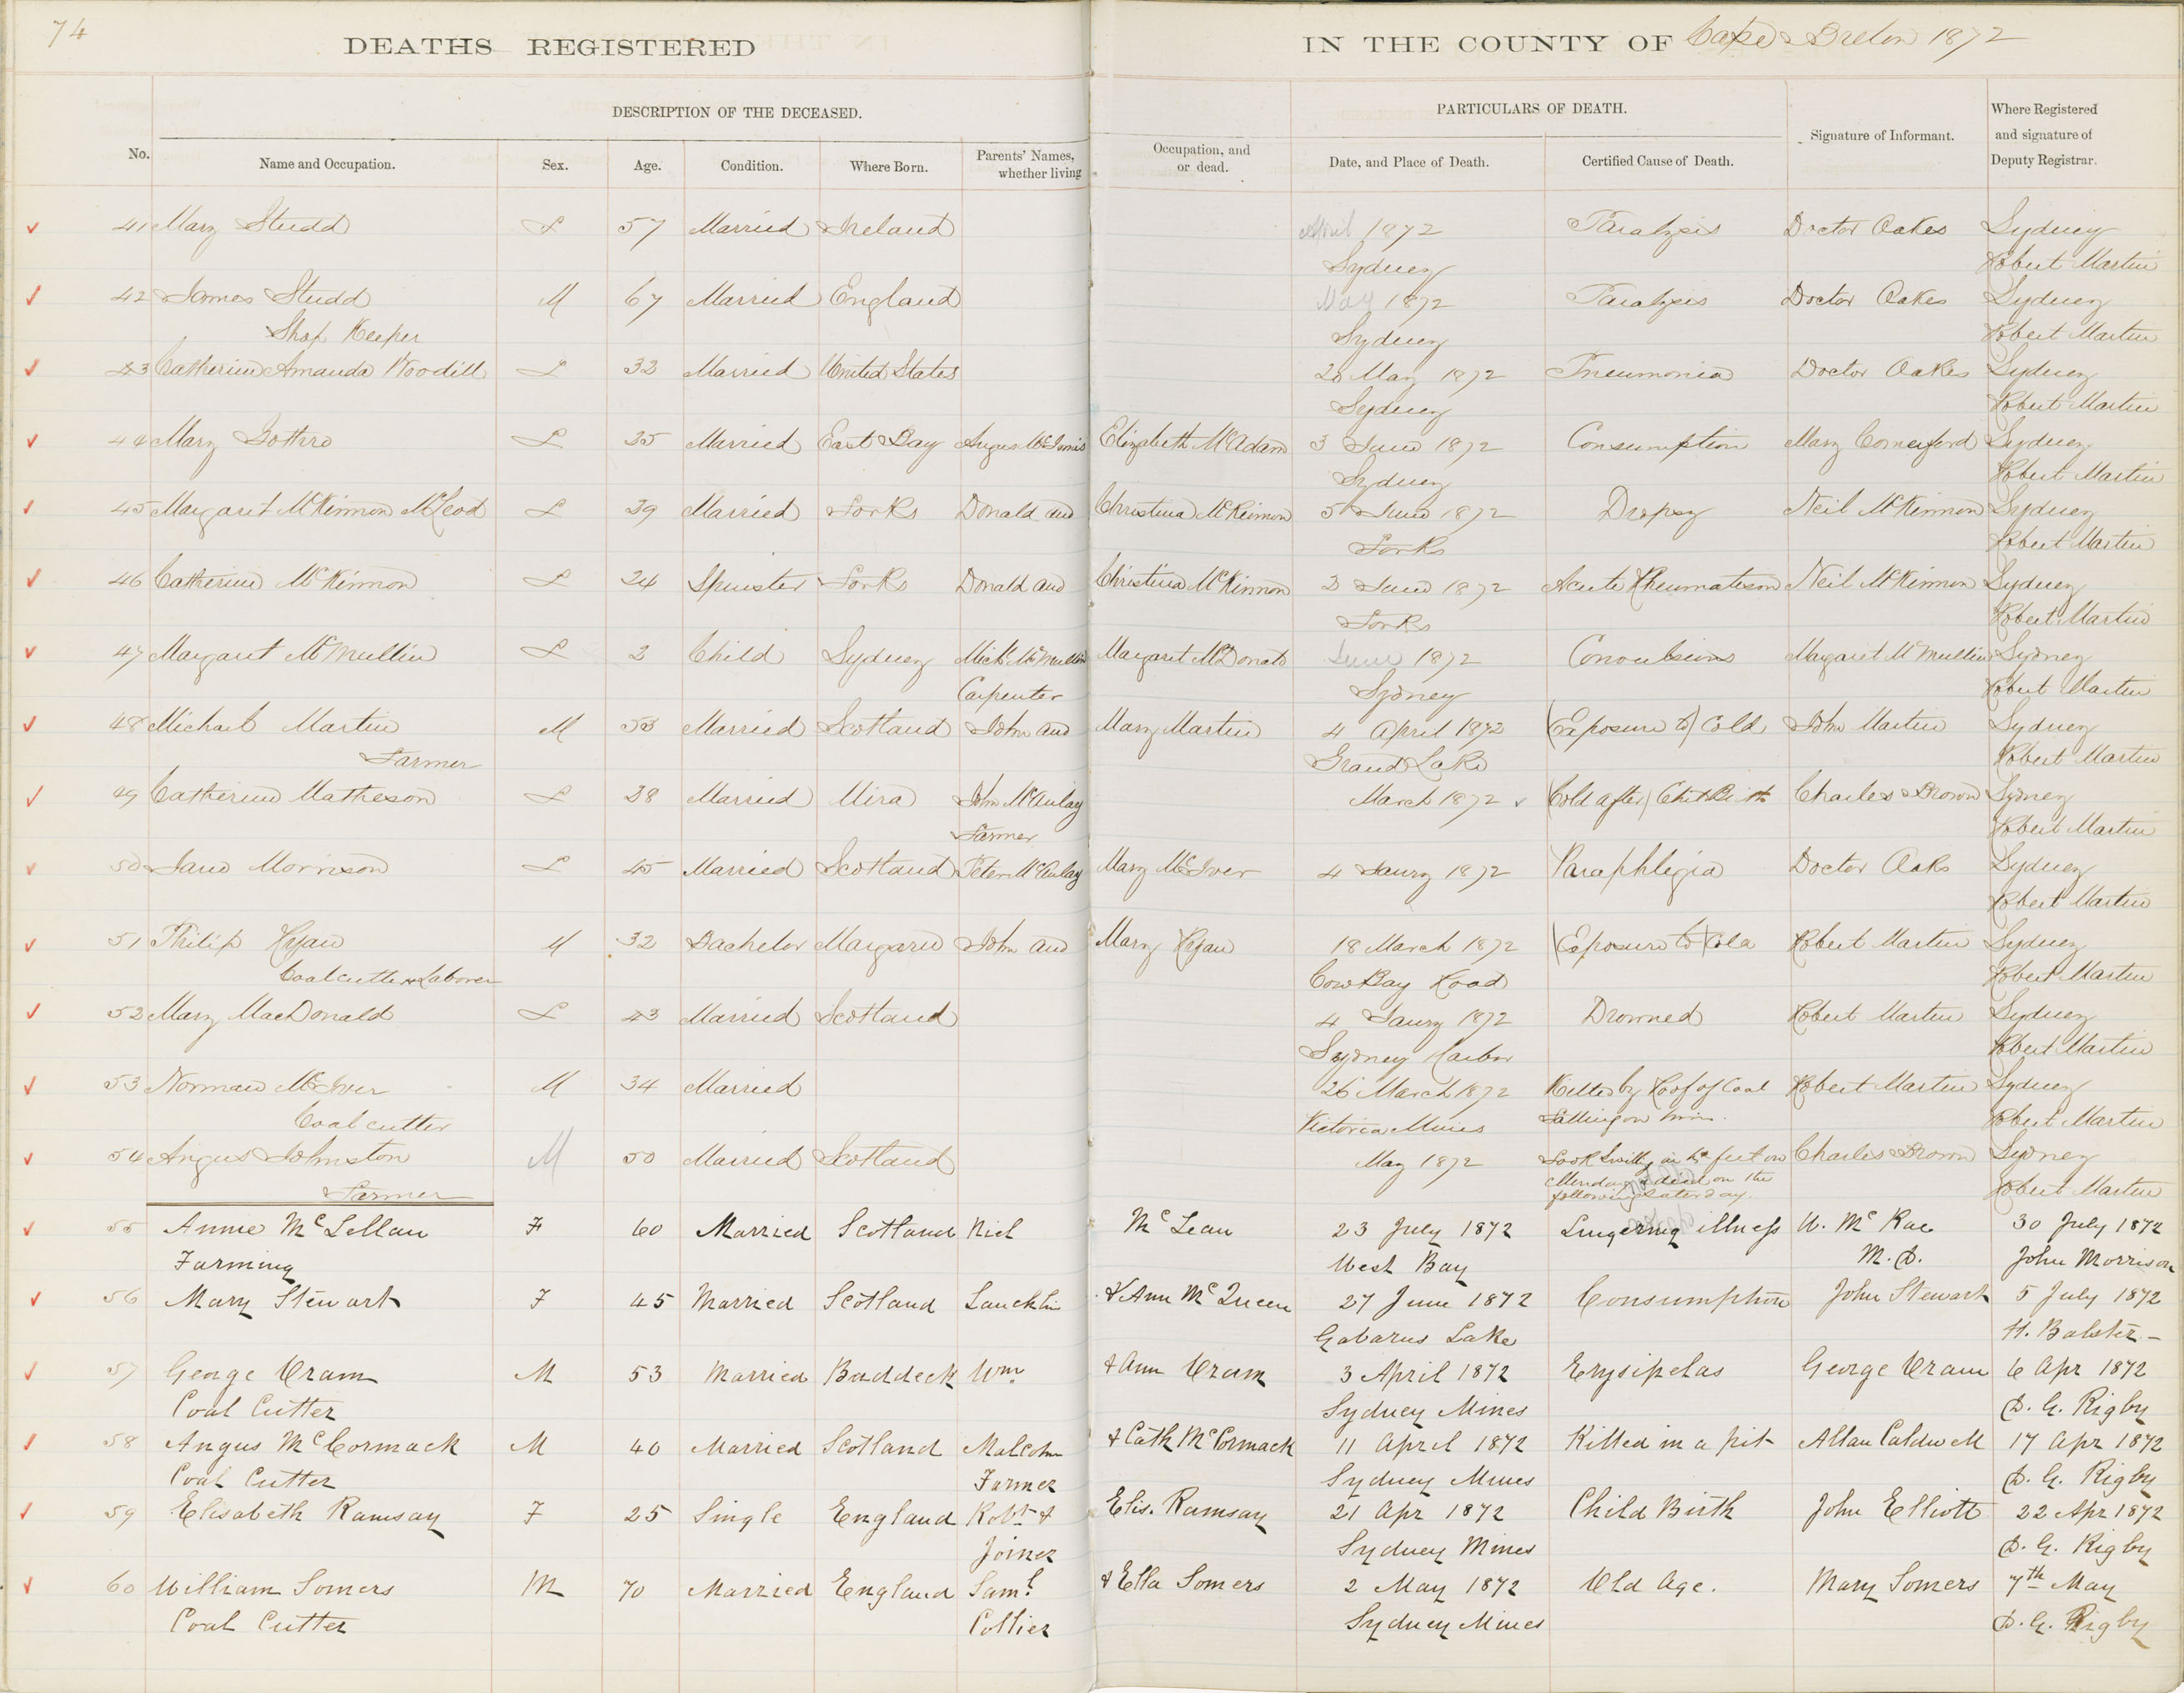 74
DEATHS REGISTERED IN THE COUNTY OF Cape Breton 1872
DESCRIPTION OF THE DECEASED. PARTICULARS OF DEATH. Where Registered
and signature of
Deputy Registrar.
No. Name and Occupation. Sex. Age. Condition. Where Born. Parents' Names, Occupation, and Date, and Place of Death. Certified Cause of Death. Signature of Informant.
whether living or dead.
41 Mary Studd F 57 Married Ireland April 1872 Paralysis Doctor Oakes Sydney
Sydney Robert Martin
42 James Studd M 67 Married England May 1872 Paralysis Doctor Oakes Sydney
Shop Keeper Sydney Robert Martin
43 Catherine Amanda Woodill F 32 Married United States 20 May 1872 Pneumonia Doctor Oakes Sydney
Sydney Robert Martin
44 Mary Gothro F 25 Married East Bay Angus McInnis Elizabeth McAdam 3 June 1872 Consumption Mary Comerford Sydney
Sydney Robert Martin
45 Margaret McKinnon McLeod F 39 Married Forks Donald and Christina McKinnon 5 June 1872 Dropsy Neil McKinnon Sydney
Forks Robert Martin
46 Catherine McKinnon F 24 Spinster Forks Donald and Christina McKinnon 3 June 1872 Acute Rheumatism Neil McKinnon Sydney
Forks Robert Martin
47 Margaret McMullin F 3 Child Sydney Michl McMullin Margaret McDonald June 1872 Convulsions Margaret McMullin Sydney
Carpenter Sydney Robert Martin
48 Michael Martin M 53 Married Scotland John and Mary Martin 4 April 1872 (Exposure to) Cold John Martin Sydney
Farmer Grand Lake Robert Martin
49 Catherine Matheson F 38 Married Mira John McAulay March 1872 (Cold after) Child Birth Charles Brown Sydney
Farmer Robert Martin
50 Jane Morrison F 45 Married Scotland Peter McAulay Mary McIver 4 Jaury 1872 Paraphlegia Doctor Oaks Sydney
Robert Martin
51 Philip Ryan M 32 Bachelor Margaree John and Mary Ryan 18 March 1872 (Exposure to) Cold Robert Martin Sydney
Coalcutter & Laborer Cow Bay Road Robert Martin
52 Mary MacDonald F 43 Married Scotland 4 Jaury 1872 Drowned Robert Martin Sydney
Sydney Harbor Robert Martin
53 Norman McIver M 34 Married 26 March 1872 Killed by Roof of Coal Robert Martin Sydney
Coal cutter Victoria Mines Falling on him. Robert Martin
54 Angus Johnston M 50 Married Scotland May 1872 Took in feet on Charles Brown Sydney
Farmer Monday & died on the Robert Martin
following Saturday.
55 Annie McLellan F 60 Married Scotland Niel McLean 23 July 1872 Lingering illness McRae 30 July 1872
Farming West Bay M.D. John Morrison
56 Mary Stewart F 45 Married Scotland Laucklin & Ann McQueen 27 June 1872 Consumption John Stewart 5 July 1872
Gabarus Lake
57 George Oram M 53 Married Baddeck Wm & Ann Oram 3 April 1872 Erysipelas George Oram 6 Apr 1872
Coal Cutter Sydney Mines D. G. Rigby
58 Angus McCormack M 40 Married Scotland Malcolm & Cath McCormack 11 April 1872 Killed in a pit Allan Caldwell 17 Apr 1872
Coal Cutter Farmer Sydney Mines D. G. Rigby
59 Elisabeth Ramsay F 25 Single England Robt & Elis. Ramsay 21 Apr 1872 Child Birth John Elliott 22 Apr 1872
Joiner Sydney Mines D. G. Rigby
60 William Somers M 70 Married England Saml & Ella Somers 2 May 1872 Old Age. Mary Somers 7th May
Coal Cutter Collier Sydney Mines D. G. Rigby